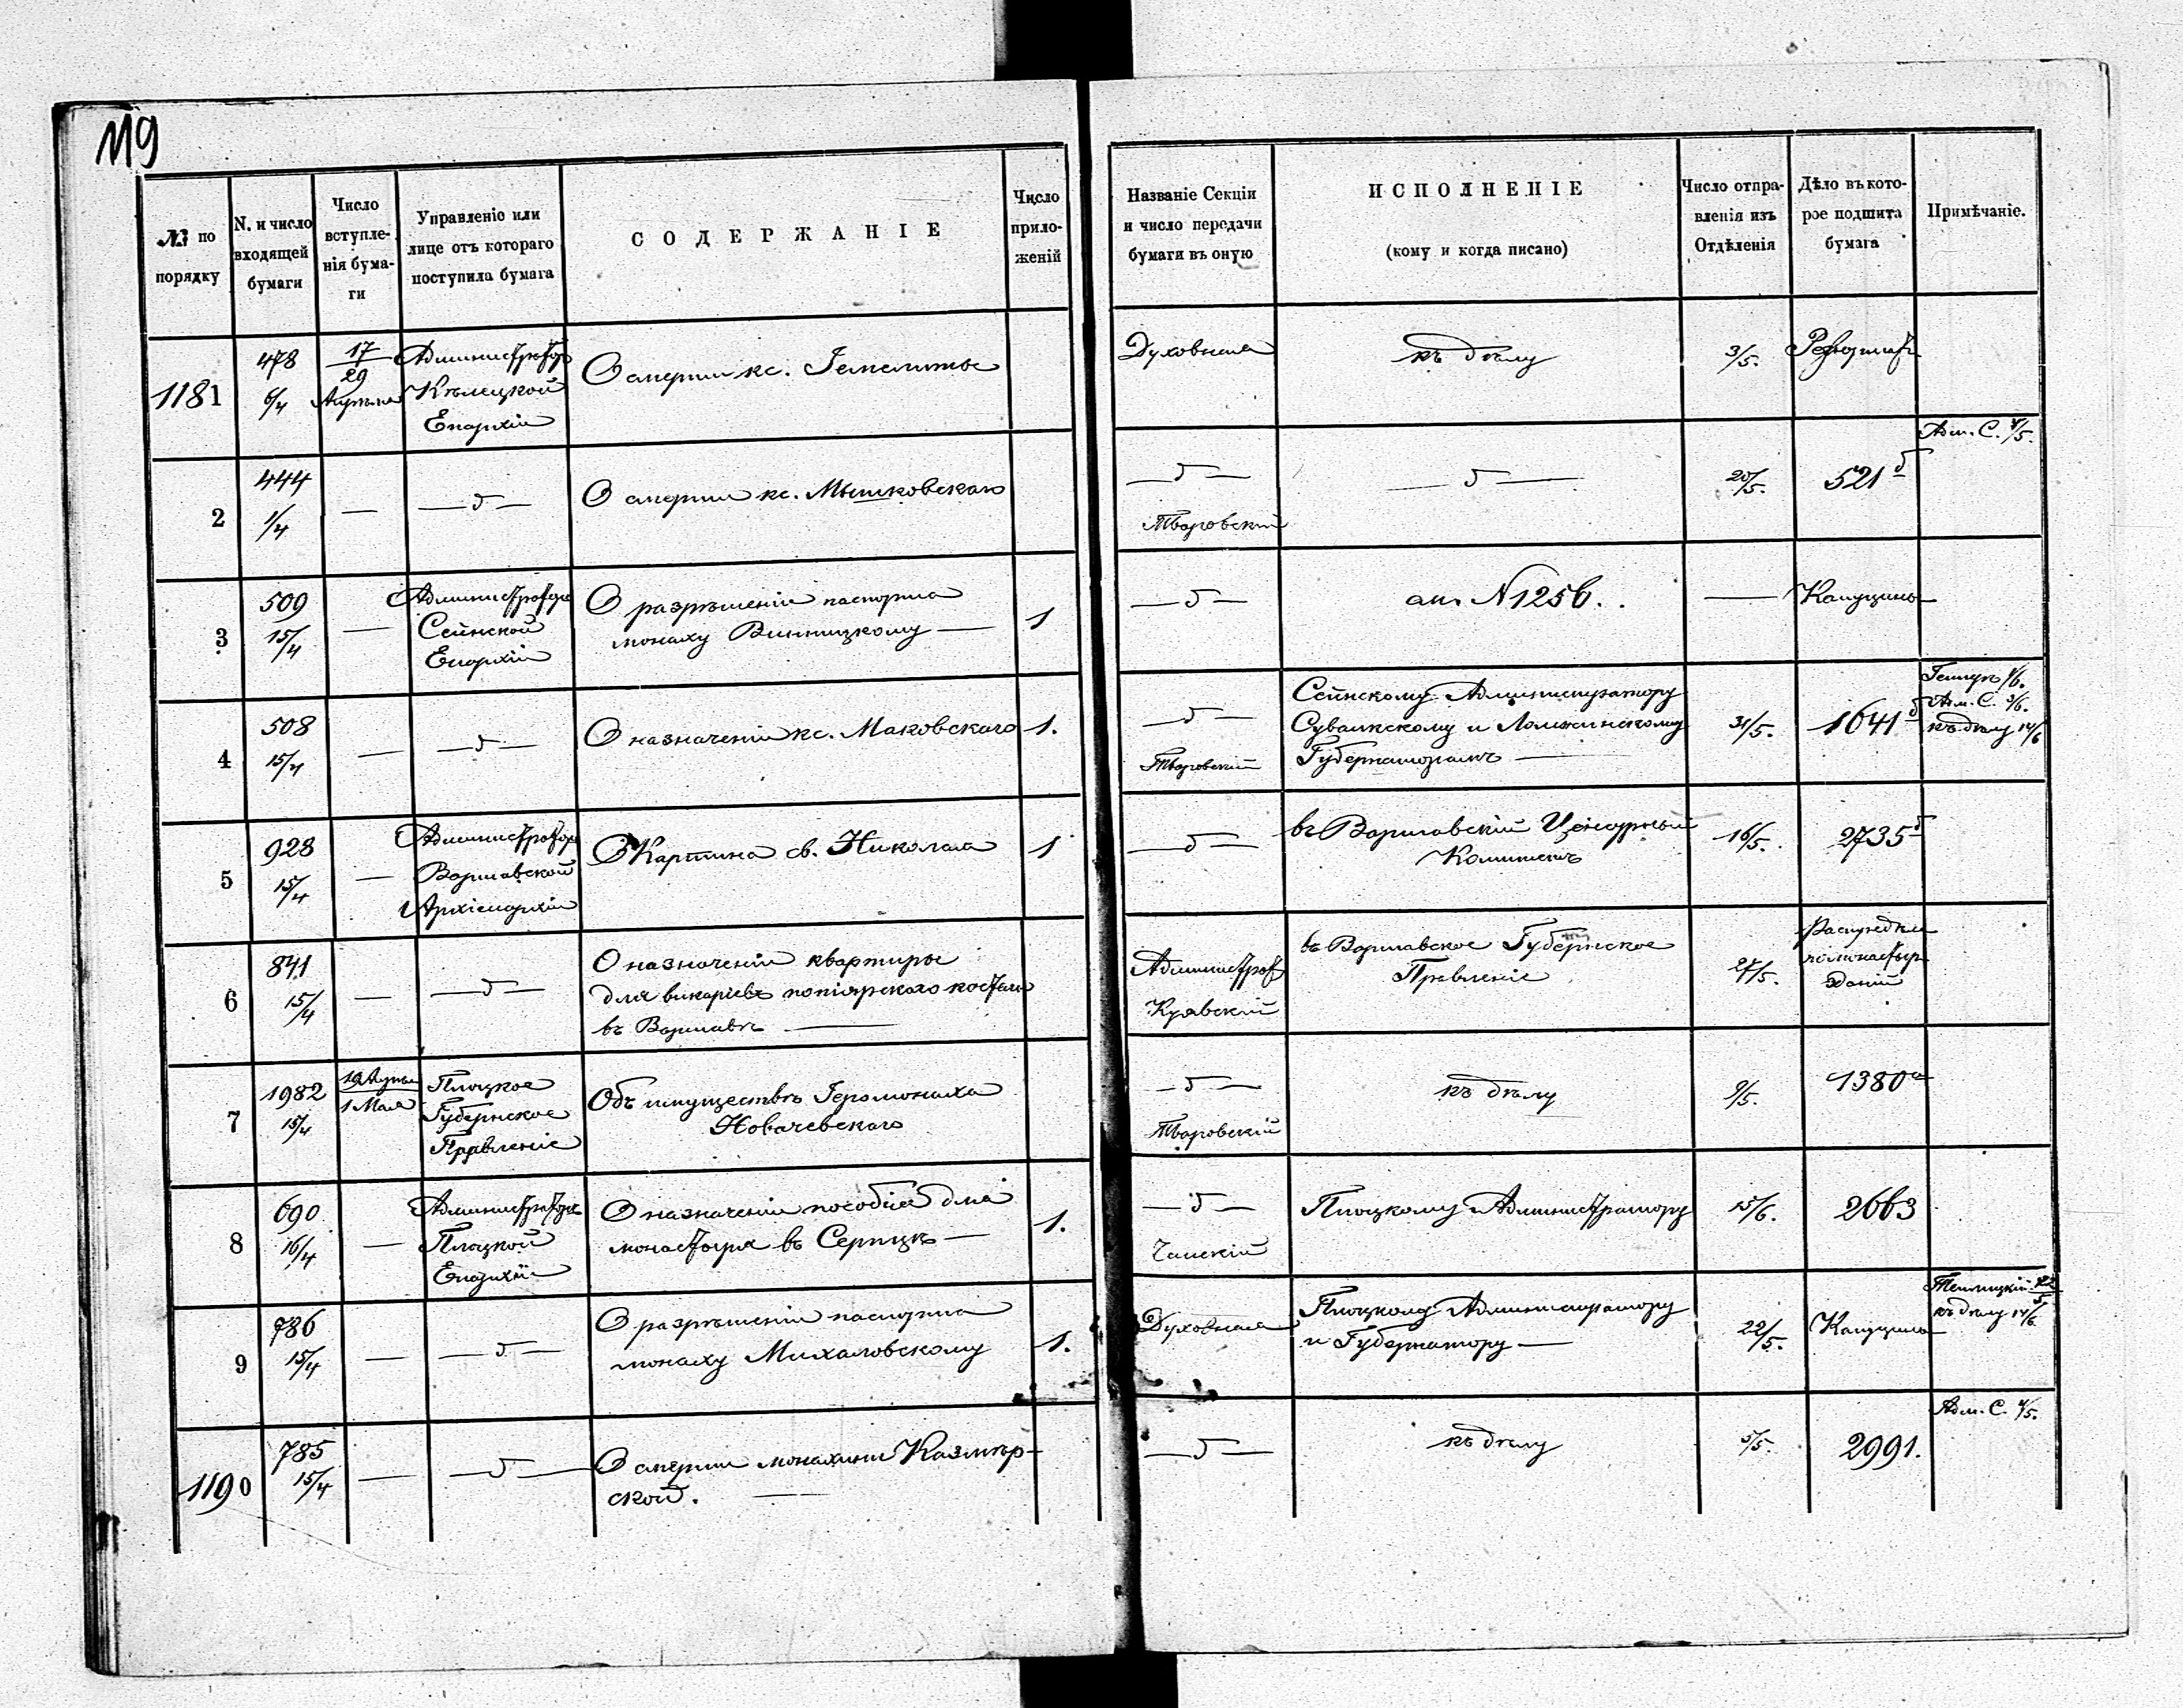 119
№ по порядку
N. и число входящей бумаги
Число вступленія бумаги
Управленіе или лице отъ котораго поступила бумага
СОДЕРЖАНІЕ
Число приложеній
Названіе Секціи и число передачи бумаги въ оную
ИСПОЛНЕНІЕ
(кому и когда писано)
Число отправленія изъ Отдѣленія
Дѣло въ которое подшита бумага
Примѣчаніе.
1181
478
6/4
17
29
Апрѣля
Администраторъ
Кѣлецкой
Епархіи
О смерти кс.
Духовная
къ дѣлу
3/5.
2
444
1/4
—
— д —
О смерти кс. Мышковскаго
— д —
Тваровскій
— д —
20/5.
521 б
Адм. С. 4/5.
3
509
15/4
—
Администраторъ
Сейнской
Епархіи
О разрѣшеніи паспорта
монаху Винницкому —
1
— д —
ст. N 1256.
—
Капуцины
4
508
15/4
—
— д —
О назначеніи кс. Маковскаго
1.
— д —
Тваровскій
Сейнскому Администратору
Сувалкскому и Ломжинскому
Губернаторамъ —
31/5.
1641 б
Адм. С. 3/6.
къ дѣлу 14/6
5
928
15/4
—
Администраторъ
Варшавской
Архіепархіи
О Картина св. Николая
1
— д —
въ Варшавскій Цензурный
Комитетъ
16/5.
2735 б
6
841
15/4
—
— д —
О назначеніи квартиры
для викаріевъ попіярскаго костела
въ Варшавѣ —
Администрат
Куявскій
въ Варшавское Губернское
Правленіе
27/5.
монастыр
зданій
7
1982
15/4
19 Апрѣля
1 Мая
Плоцкое
Губернское
Правленіе
Объ имуществѣ Іеромонаха
Новачевскаго
— д —
Тваровскій
къ дѣлу
9/5.
1380 а
8
690
16/4
—
Администраторъ
Плоцкой
Епархіи
О назначеніи пособія для
монастыря въ Серпцѣ —
1.
— д —
Плоцкому Администратору
15/6.
2663
9
786
15/4
—
— д —
О разрѣшеніи паспорта
монаху Михаловскому
1.
Духовная
Плоцкому Администратору
и Губернатору —
22/5.
Капуцины
къ дѣлу 14/6
1190
785
15/4
—
— д —
О смерти монахини Казмѣр-
ской. —
— д —
къ дѣлу
5/5.
2991.
Адм. С. 4/5.